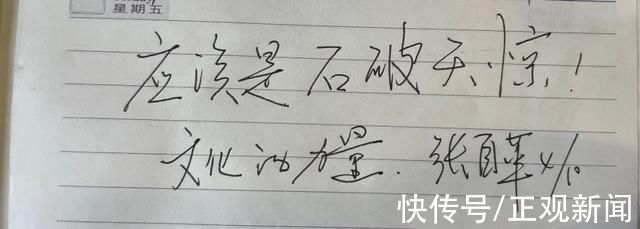 星期五
应该是石破天惊!
文化的力量. 张自革 4/10
快传号/正观新闻